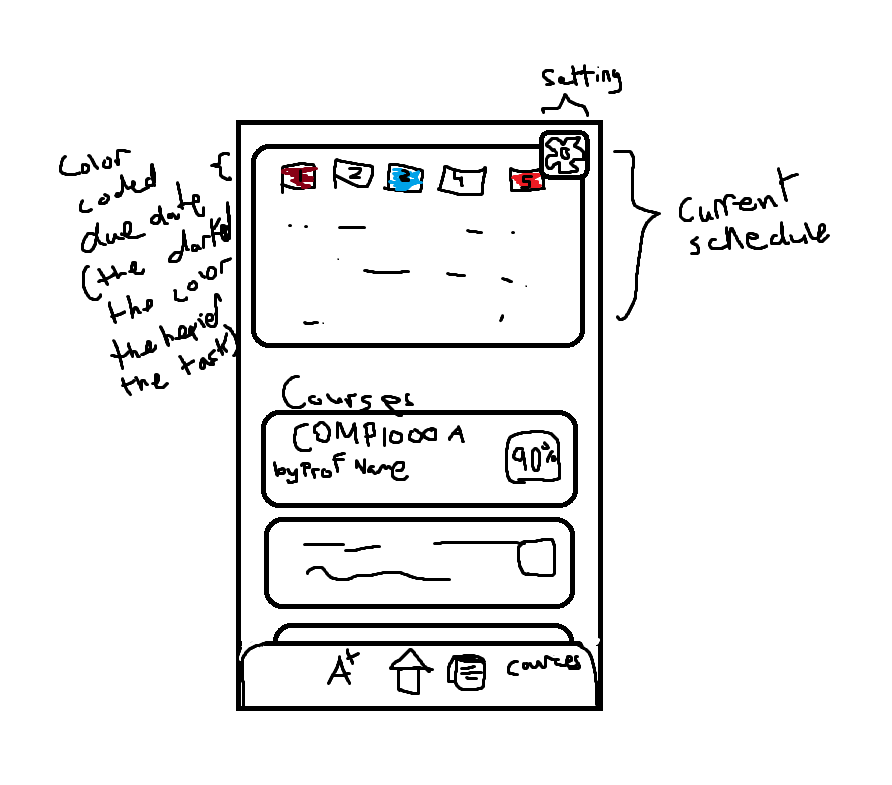 setting
color
coded
due date
(the darker
the color
the heavier
the task)
1 2 3 4 5
Current
schedule
Courses
COMP1000 A
by Prof Name
90%
A+
Cources